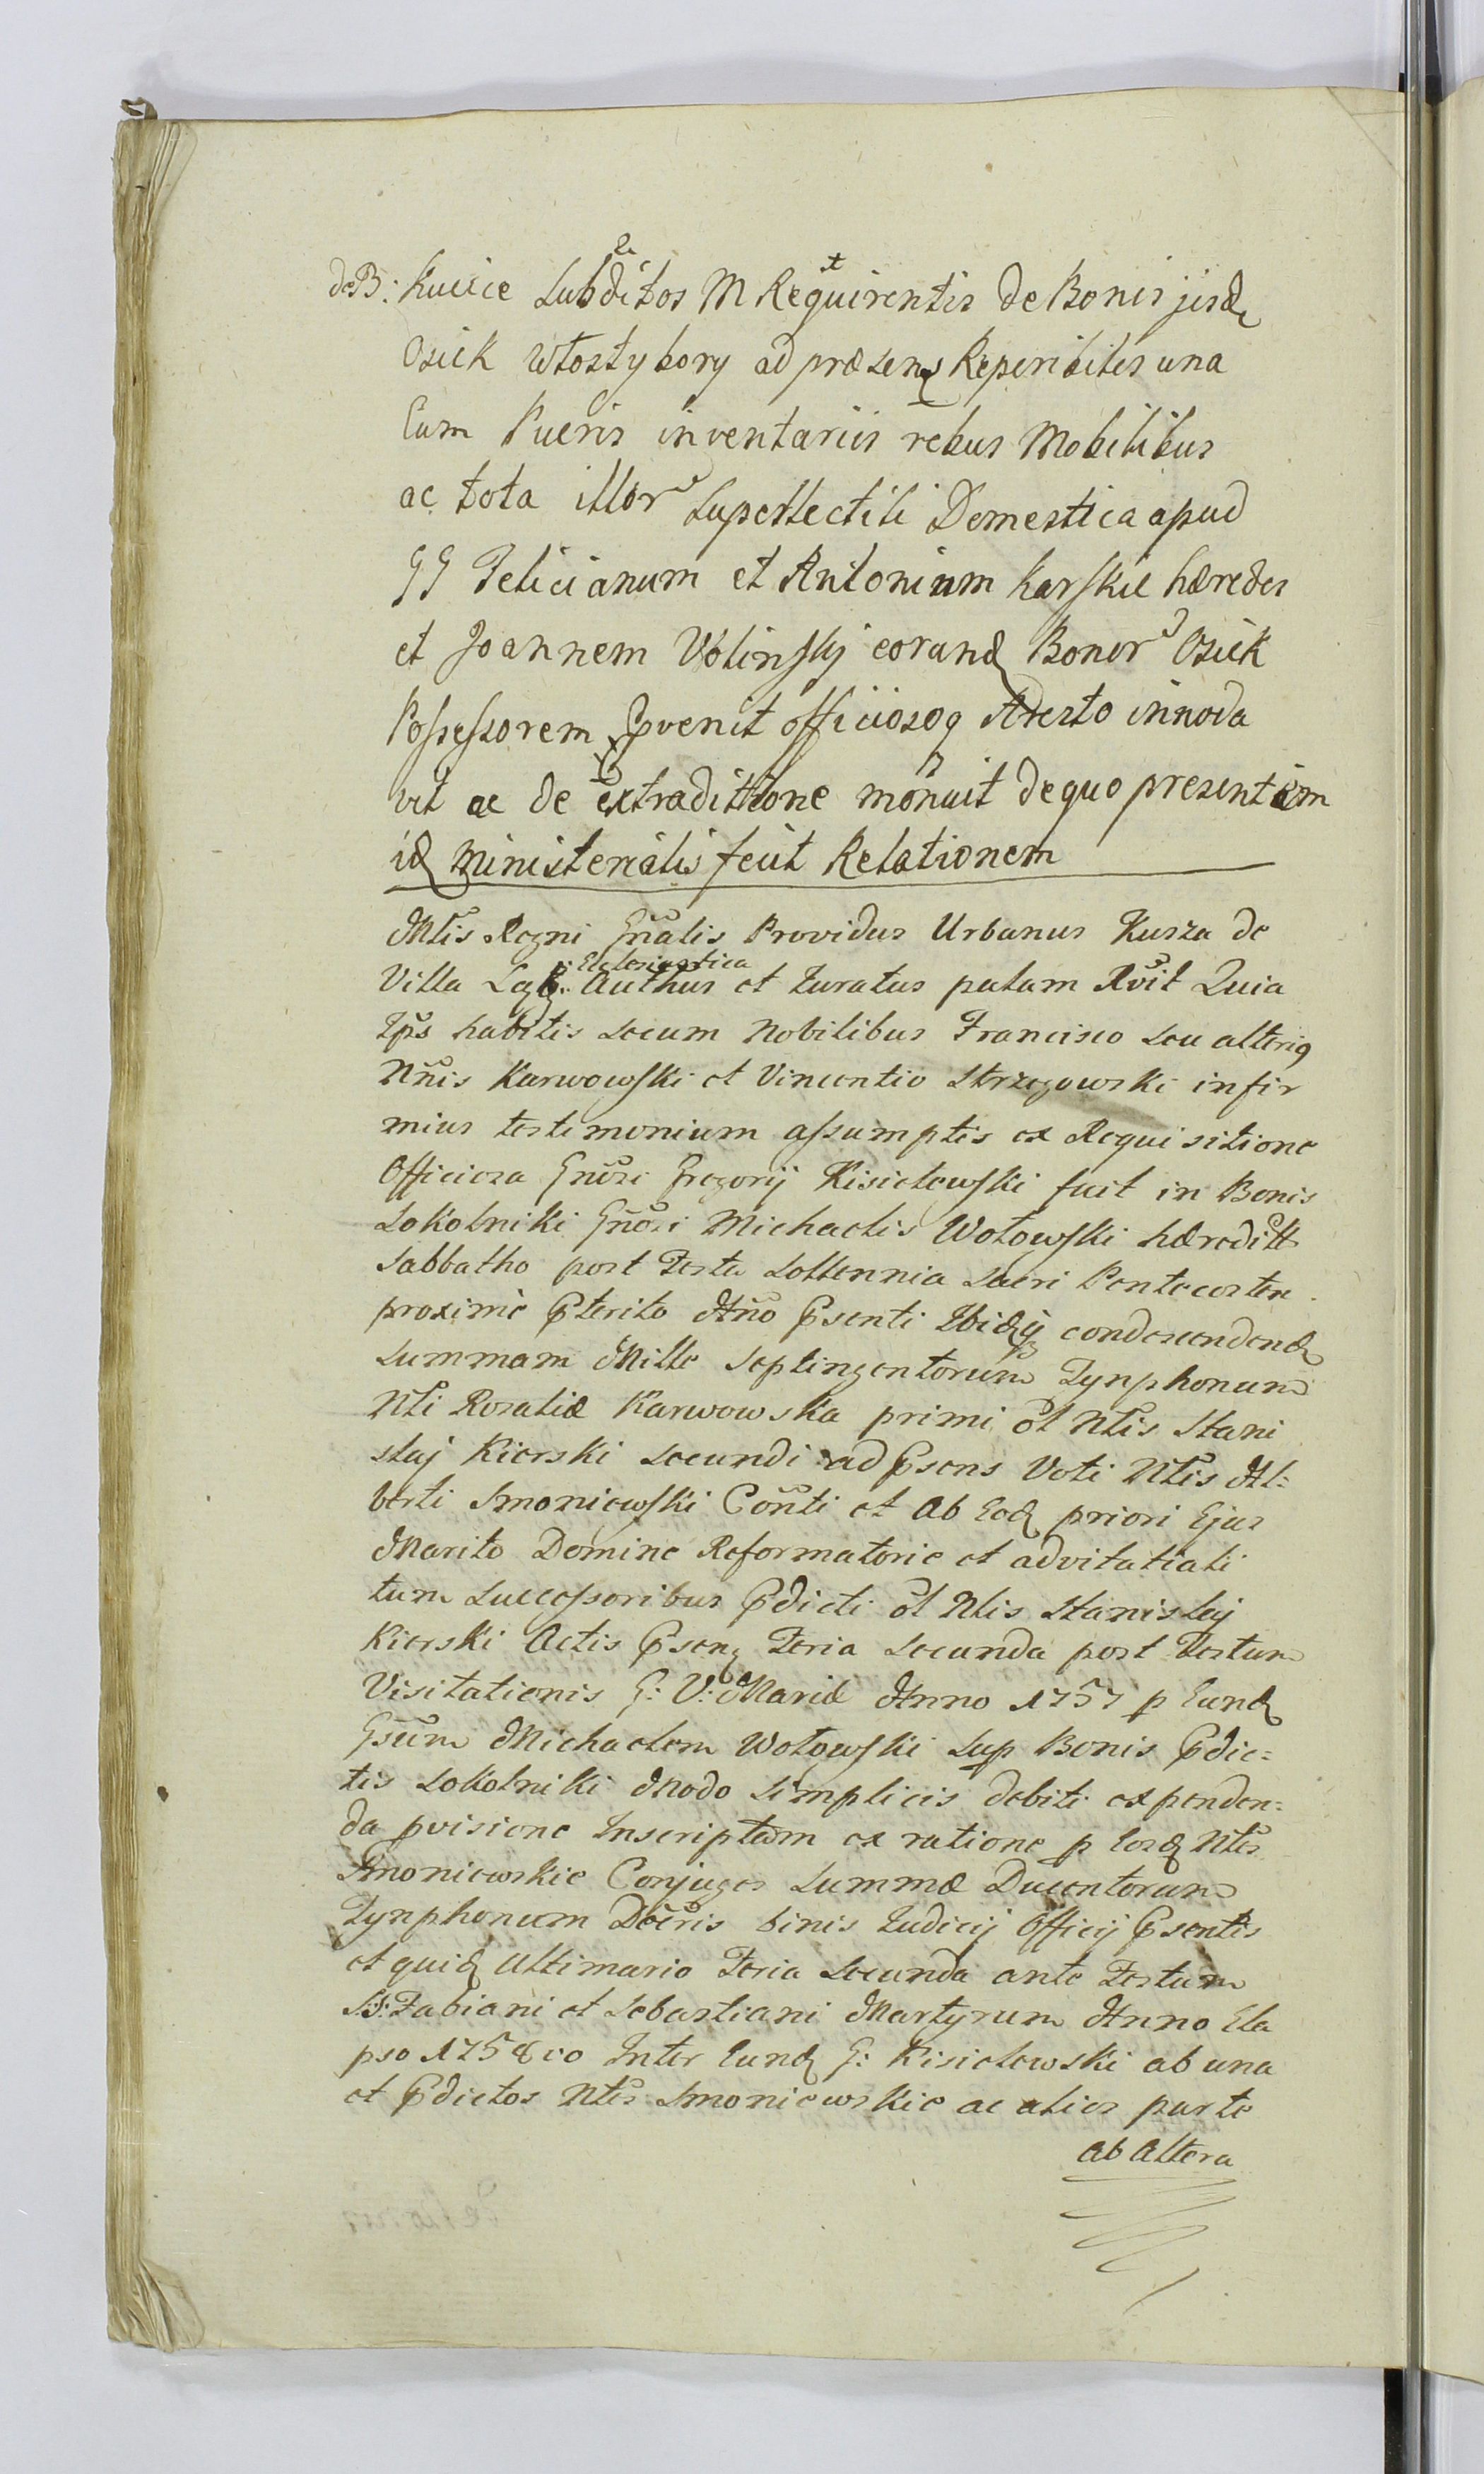 de B: Kucice Subditos M Requirentis de Bonis jisd
Osiek Wtostybory ad præsens Reperibiles una
Cum Pueris inventariis rebus Mobilibus
ac tota illor Supellectili Domestica apud
GG Felicianum et Antonium Karskie hæredes
et Joannem Wolinskj eorund Bonor Osiek
Possessorem Pvenit officioseq Aresto innoda
vit ac de extradittione monuit de quo presentem
id Ministerialis fecit Relationem
Mtis Regni Gnalis Providus Urbanus Kusza de
Villa Eclesiastica Authus et Juratus palam Rvit Quia
Ips habitis secum Nobilibus Francisco seu alterig
Nnis Karwowski et Vincentio Strzegowski in fir
mius testimonium assumptis ex Requisitione
Officiosa Gnosi Gregorij Kisielewski fuit in Bonis
Sokolniki Gnosi Michaelis Wotowski hæreditt
Sabbatho post Festa Sollennia Sacri Pentecostes
proxime Pterito Anno Psenti Ibidq condescendend
Summam Mille Septingentorum Tynphonum
Nti Rosaliæ Karwowska primi ol Ntis Stani
slaj Kierski secundi ad Psens Voti Ntis Al:
berti Smoniewski Conti et Ab Eod priori Ejus
Marito Domine Reformatorie et advitatiali
tum Successoribus Pdicti ol Ntis Stanislaj
Kierski Actis Psen Feria Secunda post Festum
Visitationis G: V: Mariæ Anno 1757 p Eund
Gsum Michaelem Wotowski Sup Bonis Pdic=
tis Sokolniki Modo Simplicis debiti ex penden=
da pvisione Inscriptam ex ratione p Eosd Ntes
Smoniewskie Conjuges Summæ Ducentorum
Tynphonum Dcris binis Judicij Officij Psentis
et quid Ultimario Feria Secunda ante Festum
SS: Fabiani et Sebastiani Martyrum Anno Ela
pso 1758vo Inter Eund G: Kisielewski ab una
et Pdictos Ntes Smoniewskie ac alios parte
ab Altera